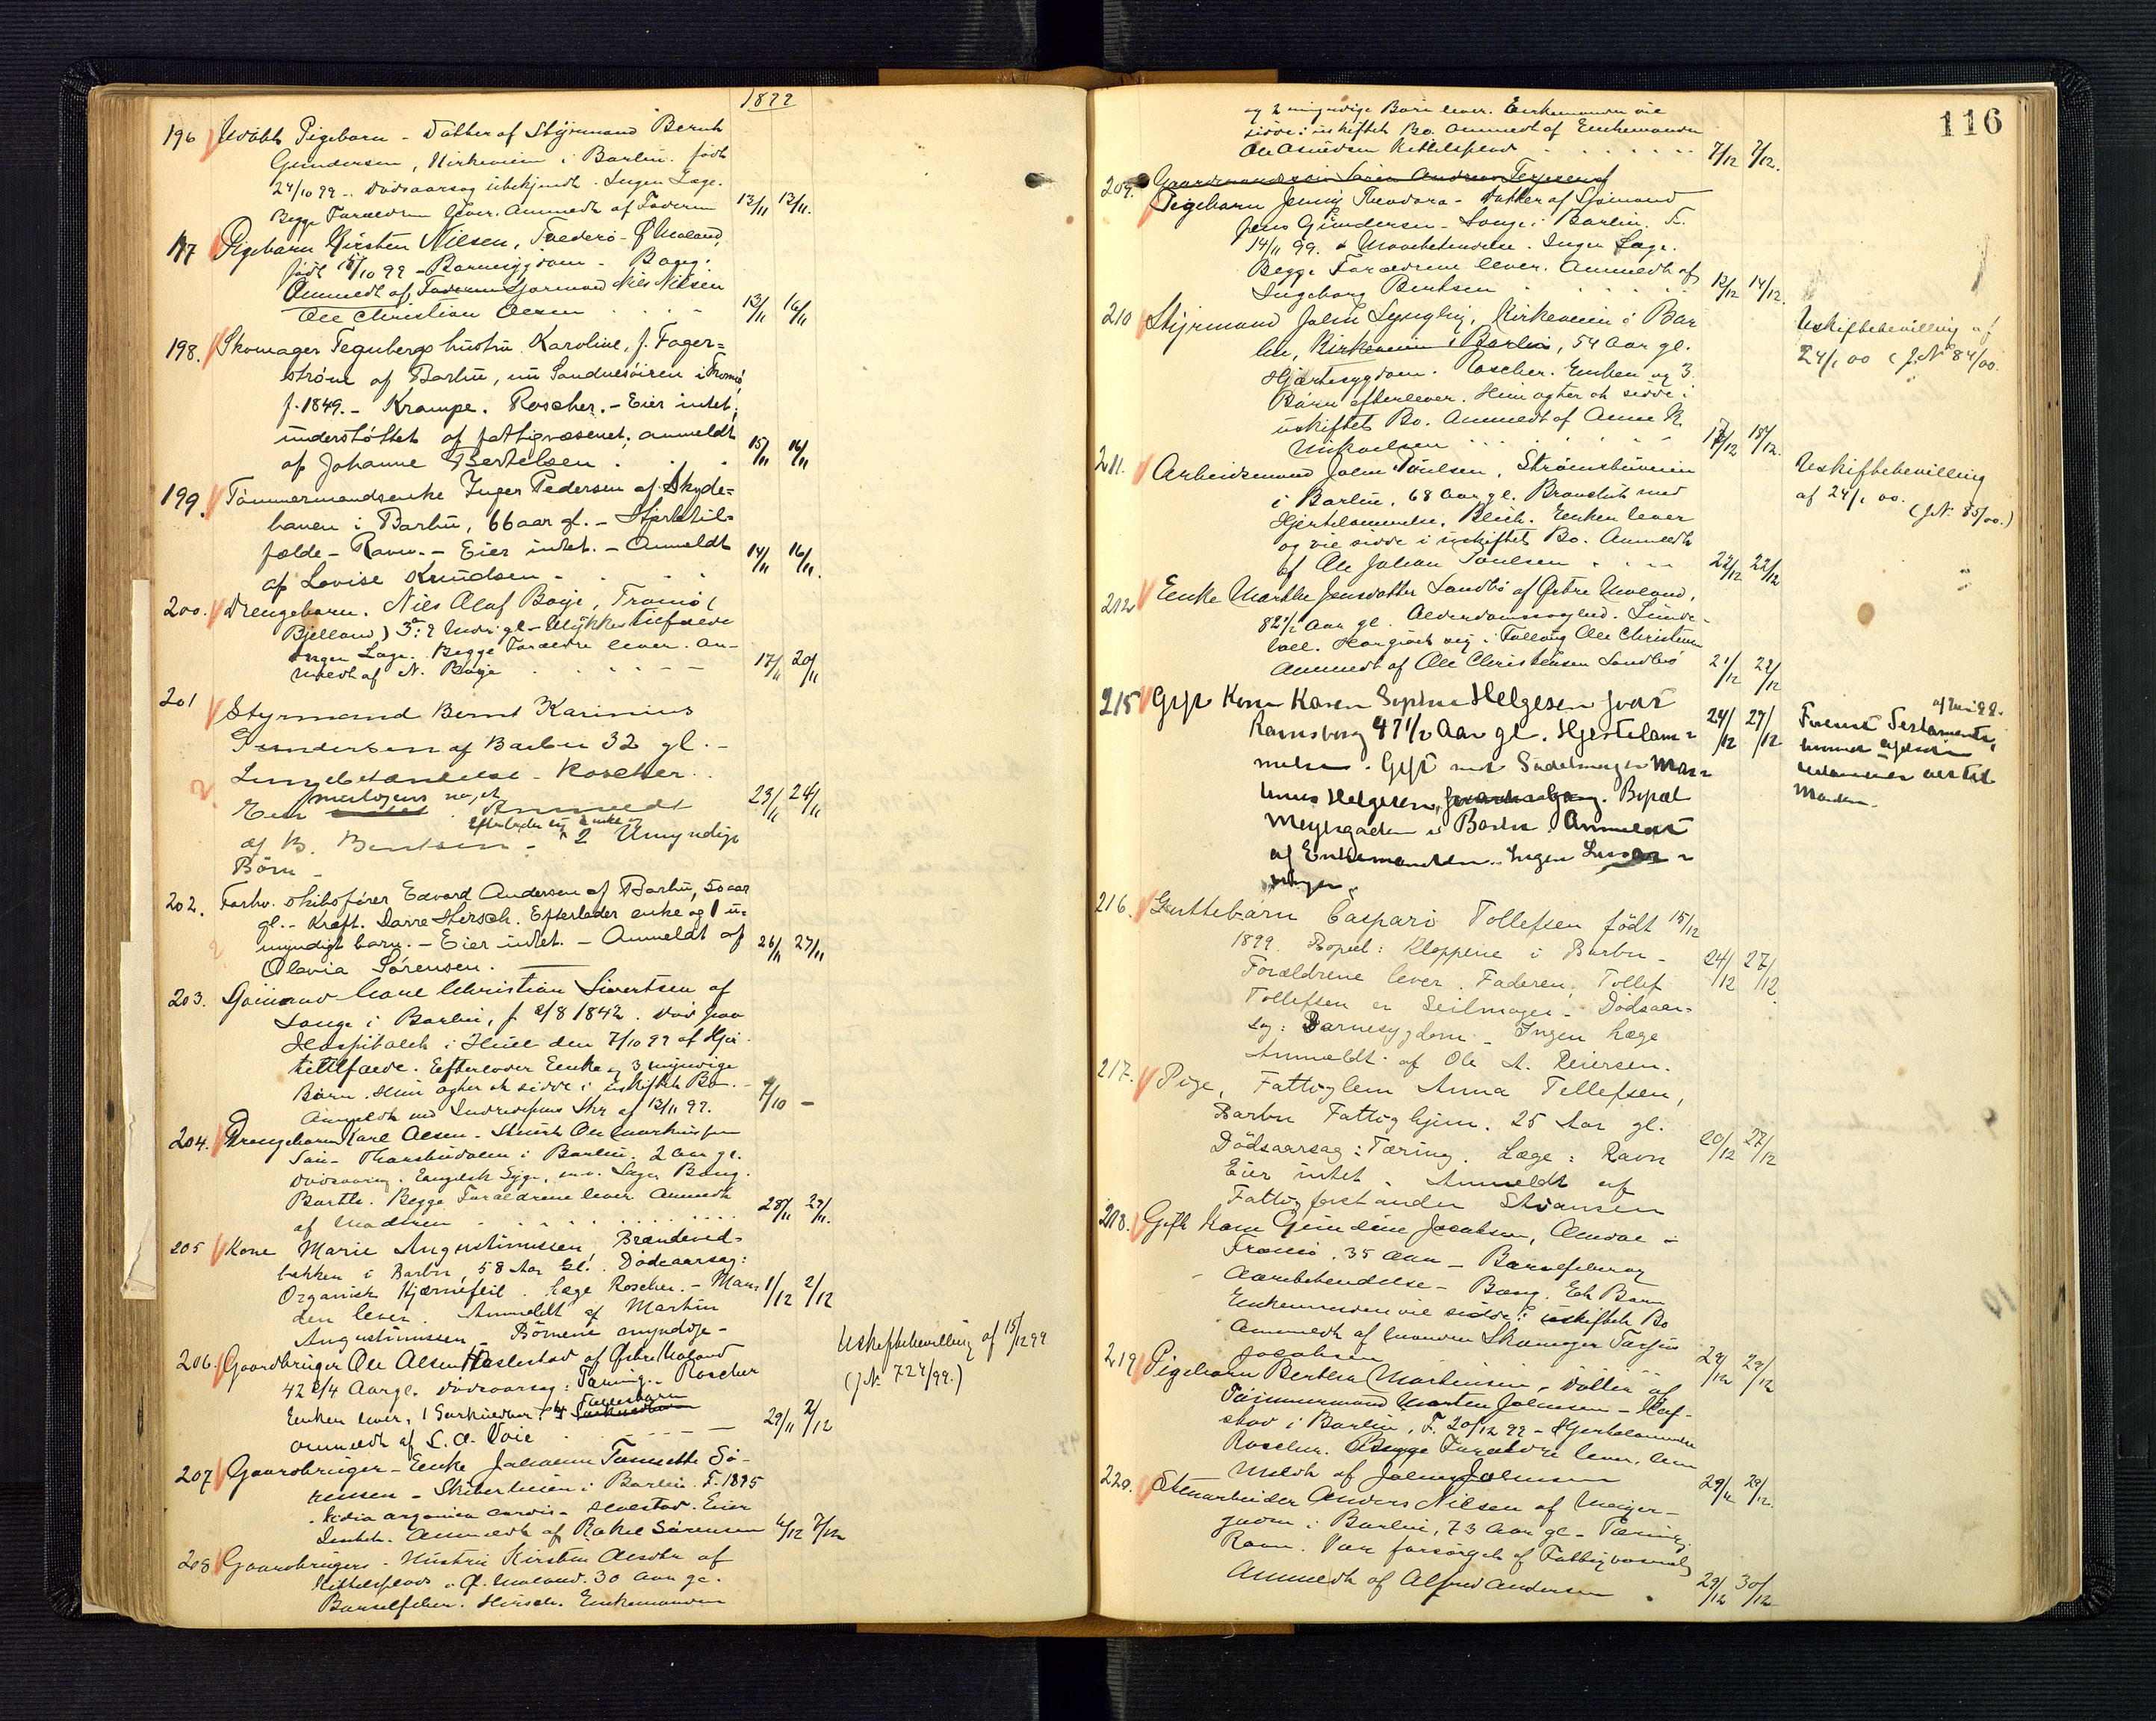 1899
196 Udøbt Pigebarn - Datter af Styrmand Bernt
Gundersen, Kirkeveien i Barbu. født
24/10 99 - Dødsaarsag ubekjendt. Ingen Læge.
Begge Forældrene lever. Anmeldt af Faderen 13/11 13/11.
197 Pigebarn Kirsten Nilsen, Ø. Moland,
født 15/10 99 - Barnesygdom -
Anmeldt af Faderen Nils Nilsen
Ole Christian Olsen 13/11 16/11
198. Skomager Tegnbergs hustru Karoline, f. Fager=
strøm af Barbu, nu Sandnesøiren i Tromø,
f. 1849. - Krampe. Roscher. - Eier intet,
understøttet af fattigvæsenet; anmeldt
af Johanne Bertelsen . . . 15/11 16/11
199. Tømmermandsenke Inger Pedersen af Skyde=
banen i Barbu, 66 aar gl. - Hjertetil=
fælde - Ravn. - Eier intet. - Anmeldt
af Lovise Knudsen - . . 14/11 16/11.
200. Drengebarn. Nils Olaf Boije, Tromø (
Bjelland) 3 gl - Ulykkestilfælde
Ingen Læge. Begge Forældre lever. An-
meldt af N. Boije 17/11 20/11
201 Styrmand Bernt Karinius
Gundersen af Barbu 32 gl. -
Lungebetændelse - Roscher.
Eier intet muligens noget. Anmeldt
af B. Bentsen - Efterlader sig enke og 2 Umyndige 23/11 24/11
Børn -
202. Forhv. skibsfører Edvard Andersen af Barbu, 50 aar
gl. - Kræft. Hirsch. Efterlader enke og 1 u=
myndigt barn. - Eier intet. - Anmeldt af 26/11 27/11
Olavia Sørensen.
203. Sømand Christian Sivertsen af
Songe i Barbu, f. 2/8 1842. Død paa
Hospitalet i Hull den 7/10 99 af Hjer-
tetilfælde. Efterlader Enke og 3 myndige
Børn. Hun agter at sidde i uskiftet Bo. - 7/10 -
Anmeldt ved Skr af 13/11 99.
204. Drengebarn Karl Olsen -
Søn - Thorsbudalen i Barbu. 2 aar gl.
Dødsaarsag. Engelsk Syge, Læge Bang.
Begge Forældrene lever Anmeldt
af Moderen 28/11 29/11.
205 Kone Marie Augustinussen, Brændevids-
bakken i Barbu, 58 Aar Gl. Dødsaarsag:
Organisk Hjærtefeil. Læge Roscher. - Man= 1/12 2/12
den lever. Anmeldt af Martin
Augustinussen - Børnene myndige -
206. Gaardbruger Ole Olsen Haslestad af Østre Moland
42 3/4 Aar gl. Dødsaarsag: Tæring. - Roscher
Enken lever, 1 Særkuldbarn, 4 Fællesbarn
Anmeldt af S. A. Voie 29/11 2/12
Uskiftebevilling af 15/12 99
(J.N. 724/99.)
207 Gaardbruger - Enke Johanne Tomette Sø-
rensen - Skiberheien i Barbu. F. 1825
Vidia organica cordis - Eier
Intet. Anmeldt af Rakel Sørensen 4/12 7/12
208 Gaardbrugers - Hustru Kirsten Olsdtr af
Kittelsplads, Ø. Moland. 30 aar gl.
Barselfeber. Hirsch. Enkemanden
116
og 2 umyndige Børn lever. Enkemanden vil
sidde i uskiftet Bo. Anmeldt af Enkemanden
Ole Kittelsplads 7/12 7/12.
209. Gaardmand Søren Andreas Terjesen af
Pigebarn Jenny Theodora - Datter af Sømand
Jens Gundersen - Songe i Barbu. F.
14/11 99. Mavebetændelse. Ingen Læge.
Begge Forældrene lever. Anmeldt af
Ingeborg Bentsen 13/12 14/12.
210 Styrmand John Lyngby, Kirkeveien i Bar
bu, Kirkeveien i Barbu, 54 aar gl.
Hjertesygdom. Roscher. Enken og 3
Børn efterlever. Hun agter at sidde i
uskiftet Bo. Anmeldt af Anne K.
Mikaelsen 17/12 18/12.
Uskiftebevilling af
24/1 00 (J.N. 84/00.
211. Arbeidsmand John Poulsen, Strømsbuveien
i Barbu. 68 aar gl. Bronchit med
Hjertelammelse. Blich. Enken lever
og vil sidde i uskiftet Bo. Anmeldt
af Ole Johan Poulsen 22/12 22/12
Uskiftebevilling
af 24/1 00.
(J.N. 85/00.)
212 Enke Marthe Jensdatter Sandbø af Østre Moland,
82 1/2 aar gl. Alderdomssvaghed.
Ole Christensen
Anmeldt af Ole Christensen Sandbø 21/12 22/12
215 Gift Kone Karen Sophie Helgesen
Ramsberg 47 1/2 Aar gl. Hjertelam= 24/12 27/12
melse. Gift med Sadelmager Mar=
tinius Helgesen. Bopæl
Meyergaden i Barbu. Anmeldt
af Enkemanden. Ingen
216. Guttebarn Caspari Tollefsen født 15/12
1899. Bopæl: Kloppene i Barbu - 24/12 27/12
Forældrene lever. Faderen, Tollef
Tollefsen er Seilmager. Dødsaar=
sag: Barnesygdom - Ingen Læge
Anmeldt af Ole A. Reiersen.
217. Pige, Fattiglem Anna Tellefsen,
Barbu Fattighjem. 25 Aar gl.
Dødsaarsag: Tæring. Læge: Ravn 20/12 27/12
Eier intet. Anmeldt af
Fattigforstander Svansen
218. Gift Kone Jacobsen,
Tromø. 35 aar - Barselfeber og
Aarebetændelse - Bang. Et Barn
Enkemanden vil sidde i uskiftet Bo
Anmeldt af manden Skomager
Jacobsen 29/12 29/12
219 Pigebarn Berthea Mortensen, Datter af
Tømmermand Morten Johnsen -
i Barbu, F. 20/12 99 - Hjertelammelse
Roscher. Begge Forældre lever. An
meldt af Johnsen 29/12 29/12.
220. Stenarbeider Anders Nilsen af Meyer-
gaden i Barbu, 73 aar gl - Tæring,
Ravn. Var forsørget af Fattigvæsenet,
Anmeldt af Alfred Andersen . 29/12 30/12